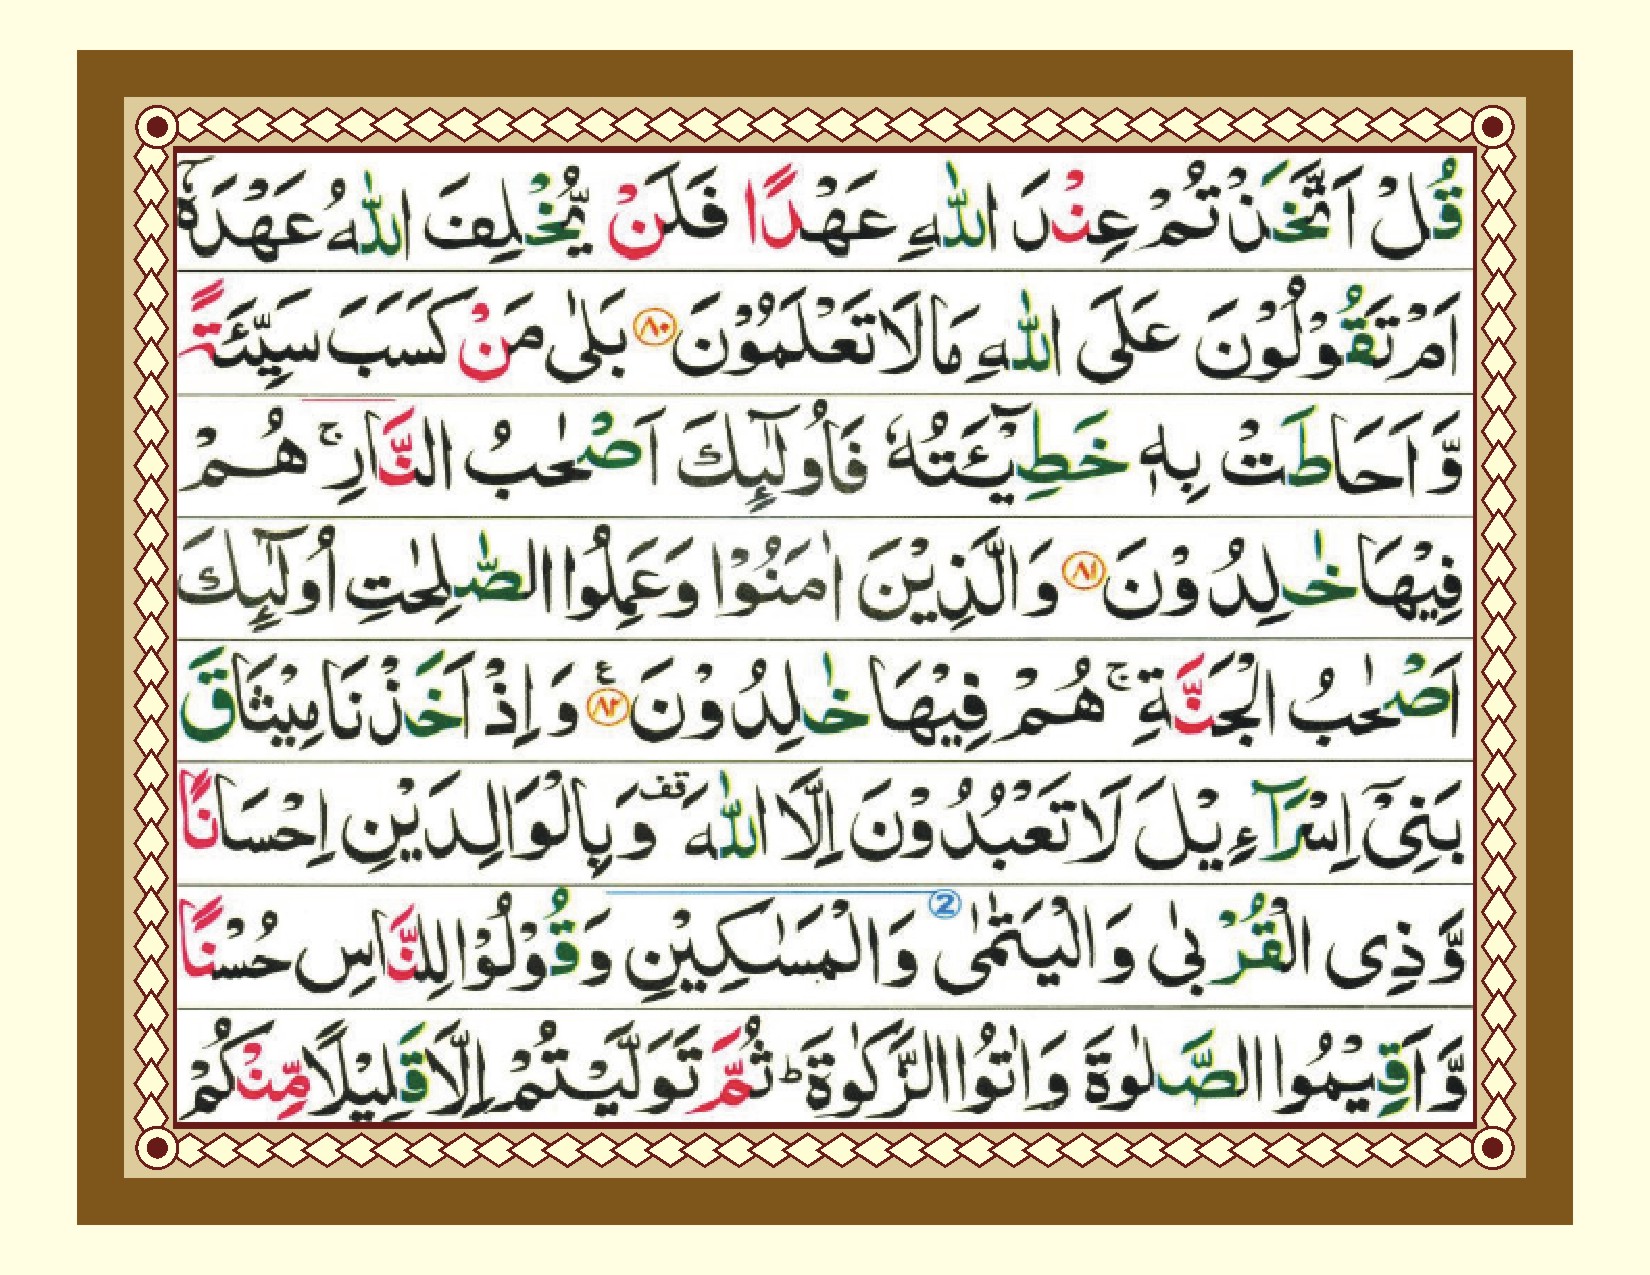 قُلْ اَتَّخَذْتُمْ عِنْدَ اللّٰهِ عَهْدًا فَلَنْ يُّخْلِفَ اللّٰهُ عَهْدَهٗۤ
اَمْ تَقُوْلُوْنَ عَلَى اللّٰهِ مَا لَا تَعْلَمُوْنَ ﴿۸۰﴾ بَلٰى مَنْ كَسَبَ سَيِّئَةً
وَّ اَحَاطَتْ بِهٖ خَطِيْٓـَٔتُهٗ فَاُولٰٓئِكَ اَصْحٰبُ النَّارِ ۚ هُمْ
فِيْهَا خٰلِدُوْنَ ﴿۸۱﴾ وَالَّذِيْنَ اٰمَنُوْا وَعَمِلُوا الصّٰلِحٰتِ اُولٰٓئِكَ
اَصْحٰبُ الْجَنَّةِ ۚ هُمْ فِيْهَا خٰلِدُوْنَ ﴿۸۲﴾ ع وَ اِذْ اَخَذْنَا مِيْثَاقَ
بَنِيْٓ اِسْرَآءِيْلَ لَا تَعْبُدُوْنَ اِلَّا اللّٰهَ قف وَ بِالْوَالِدَيْنِ اِحْسَانًا
وَّ ذِى الْقُرْبٰى وَ الْيَتٰمٰى 2 وَ الْمَسٰكِيْنِ وَ قُوْلُوْا لِلنَّاسِ حُسْنًا
وَّ اَقِيْمُوا الصَّلٰوةَ وَ اٰتُوا الزَّكٰوةَ ؕ ثُمَّ تَوَلَّيْتُمْ اِلَّا قَلِيْلًا مِّنْكُمْ